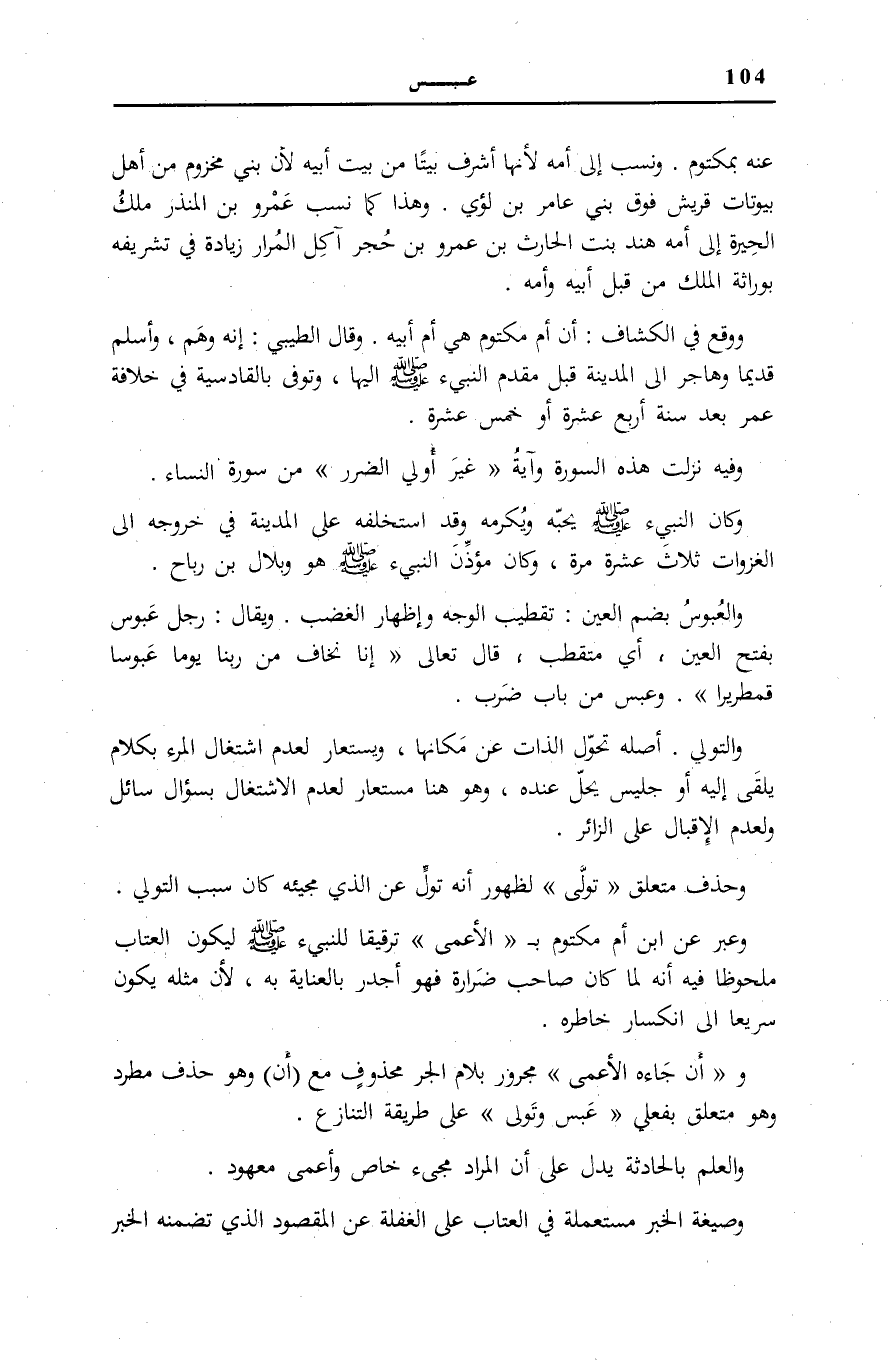 104
عبـــس
عنه بمكتوم . ونسب إلى أمه لأنها أشرف بيتًا من بيت أبيه لأن بني مخزوم من أهل
بيوتات قريش فوق بني عامر بن لؤي . وهذا كما نسب عَمْرو بن المنذر ملكُ
الحِيرة إلى أمه هند بنت الحارث بن عمرو بن حُجر آكِل المُرار زيادة في تشريفه
بوراثة الملك من قبل أبيه وأمه .
ووقع في الكشاف : أن أم مكتوم هي أم أبيه . وقال الطيبي : إنه وهَم ، وأسلم
قديما وهاجر الى المدينة قبل مقدم النبيء ﷺ اليها ، وتوفى بالقادسية في خلافة
عمر بعد سنة أربع عشرة أو خمس عشرة .
وفيه نزلت هذه السورة وآيةُ « غيرَ أُولي الضرر » من سورة النساء .
وكان النبيء ﷺ يحبّه ويُكرمه وقد استخلفه على المدينة في خروجه الى
الغزوات ثلاثَ عشرة مرة ، وكان مؤذِّنَ النبيء ﷺ هو وبلال بن رباح .
والعُبوسُ بضم العين : تقطيب الوجه وإظهار الغضب . ويقال : رجل عَبوس
بفتح العين ، أي متقطب ، قال تعالى « إنا نخاف من ربنا يوما عَبوسا
قمطريرا » . وعبس من باب ضَرب .
والتولي . أصله تحوّل الذات عن مَكانها ، ويستعار لعدم اشتغال المرء بكلام
يلقَى إليه أو جليس يحلّ عنده ، وهو هنا مستعار لعدم الاشتغال بسؤال سائل
ولعدم الإِقبال على الزائر .
وحذف متعلق « تولَّى » لظهور أنه تولٍّ عن الذي مجيئه كان سبب التولي .
وعبر عن ابن أم مكتوم بـ « الأعمى » ترقيقا للنبيء ﷺ ليكون العتاب
ملحوظا فيه أنه لما كان صاحب ضَرارة فهو أجدر بالعناية به ، لأن مثله يكون
سريعا الى انكسار خاطره .
و « أَن جَاءه الأعمى » مجرور بلام الجر محذوفٍ مع (أَن) وهو حذف مطرد
وهو متعلق بفعلي « عَبس وتَولى » على طريقة التنازع .
والعلم بالحادثة يدل على أن المراد مجيء خاص وأعمى معهود .
وصيغة الخبر مستعملة في العتاب على الغفلة عن المقصود الذي تضمنه الخبر